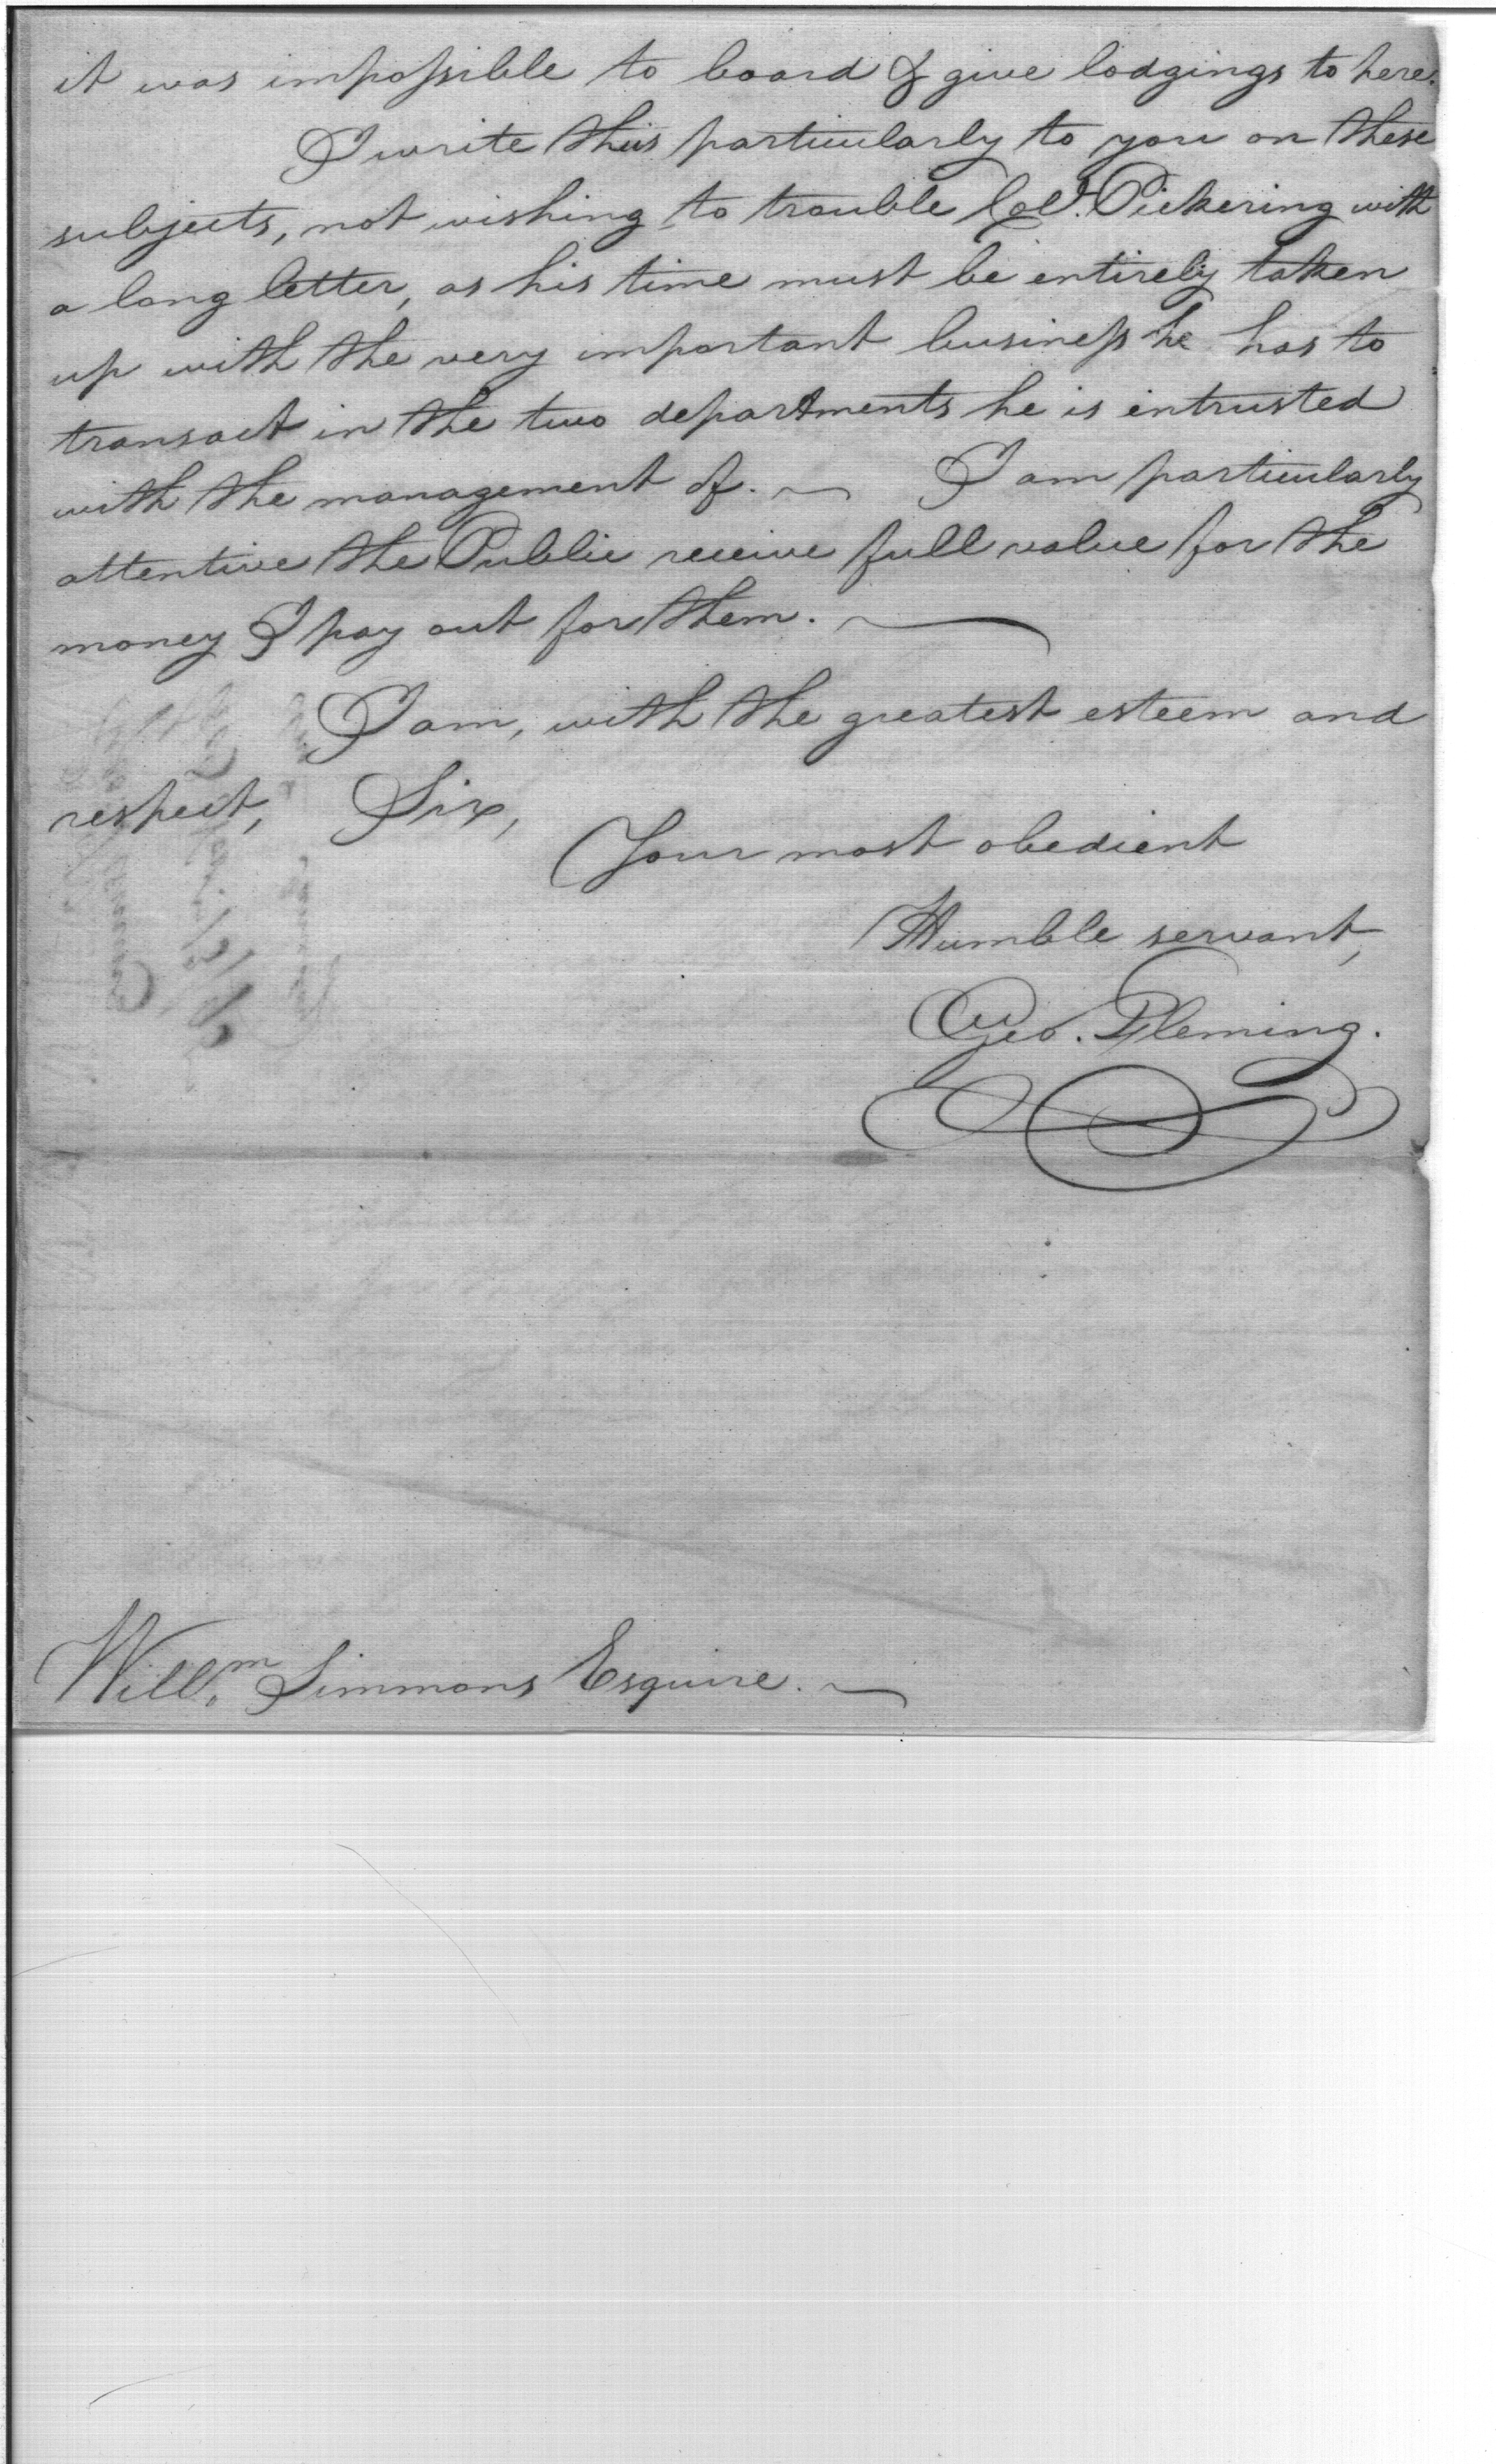 it was impossible to board & give lodgings to here.
I write thus particularly to you on these
subjects, not wishing to trouble Col.º Pickering with
a long letter, as his time must be entirely taken
up with the very important business he has to
transact in the two departments he is entrusted
with the management of. ~ I am particularly
attentive the Public receive full value for the
money I pay out for them. ~
I am, with the greatest esteem and
respect, Sir,
Your most obedient
Humble servant,
Geo. Fleming.
Will.m Simmons Esquire. ~